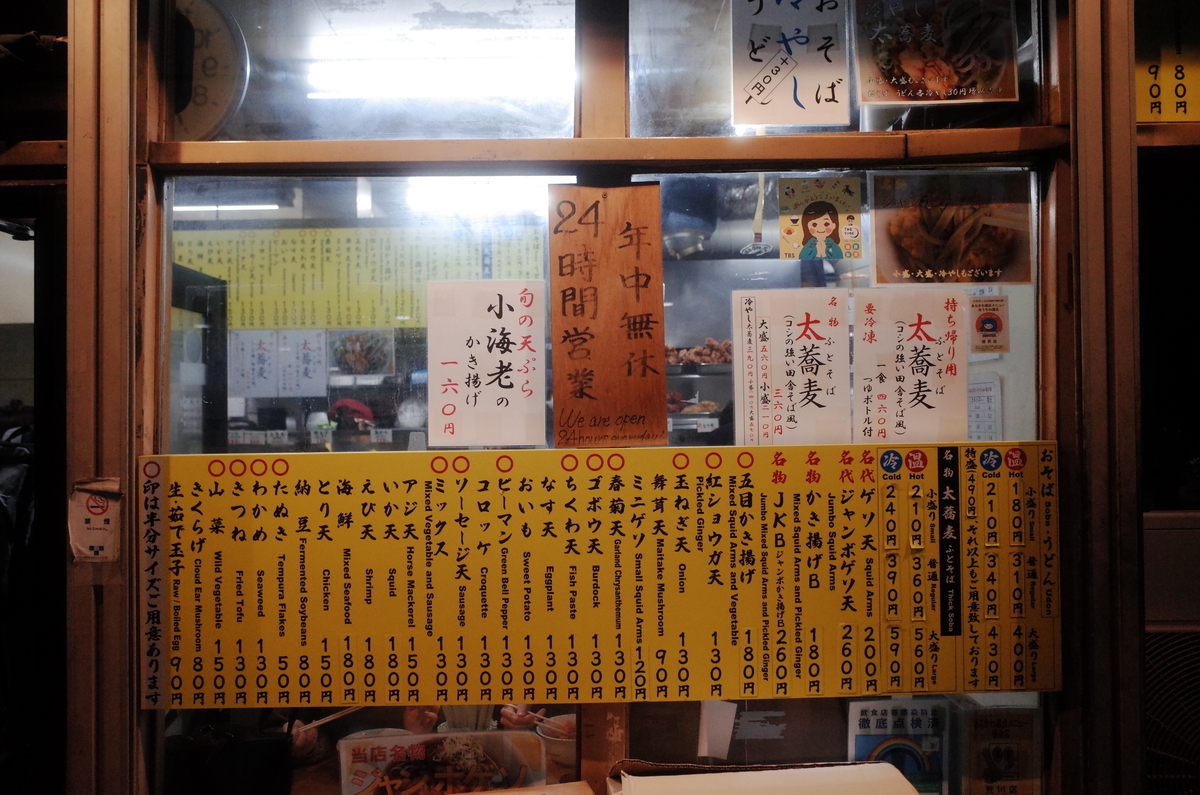 おそば
うどん
冷やし
+30円
太蕎麦
80円
90円
年中無休
24時間営業
We are open
旬の天ぷら
小海老の
かき揚げ
一六〇円
名物
ふとそば
太蕎麦
(コシの強い田舎そば風)
三六〇円
持ち帰り用
ふとそば
太蕎麦
(コシの強い田舎そば風)
一食 四六〇円
つゆボトル付
要冷凍
小盛・大盛・冷やしもございます
TBS
おそば Soba・うどん Udon
小盛り Small 普通 Regular 大盛り Large
温 Hot 180円 310円 400円
冷 Cold 210円 340円 430円
特盛(490円)、それ以上もご用意致しております
名物 太蕎麦 ふとそば Thick Soba
小盛り Small 普通 Regular 大盛り Large
温 Hot 210円 360円 560円
冷 Cold 240円 390円 590円
名代 ゲソ天 Squid Arms 200円
名代 ジャンボゲソ天 Jumbo Squid Arms 260円
名物 かき揚げB Mixed Squid Arms and Pickled Ginger 180円
名物 JKB ジャンボかき揚げB Jumbo Mixed Squid Arms and Pickled Ginger 260円
○ 五目かき揚げ Mixed Squid Arms and Vegetable 180円
○ 紅ショウガ天 Pickled Ginger 130円
○ 玉ねぎ天 Onion 130円
舞茸天 Maitake Mushroom 90円
ミニゲソ Small Squid Arms 120円
○ 春菊天 Garland Chrysanthemum 130円
○ ゴボウ天 Burdock 130円
○ ちくわ天 Fish Paste 130円
なす天 Eggplant 130円
おいも Sweet Potato 130円
○ ピーマン Green Bell Pepper 130円
コロッケ Croquette 130円
○ ソーセージ天 Sausage 130円
○ ミックス Mixed Vegetable and Sausage 130円
アジ天 Horse Mackerel 150円
いか天 Squid 180円
えび天 Shrimp 180円
海鮮 Mixed Seafood 180円
とり天 Chicken 150円
納豆 Fermented Soybeans 80円
○ たぬき Tempura Flakes 50円
○ わかめ Seaweed 130円
○ きつね Fried Tofu 130円
○ 山菜 Wild Vegetable 150円
きくらげ Cloud Ear Mushroom 80円
生・茹で玉子 Raw / Boiled Egg 90円
○印は半分サイズご用意あります
禁煙
当店名物
ジャンボゲソ
徹底点検済
荒川区